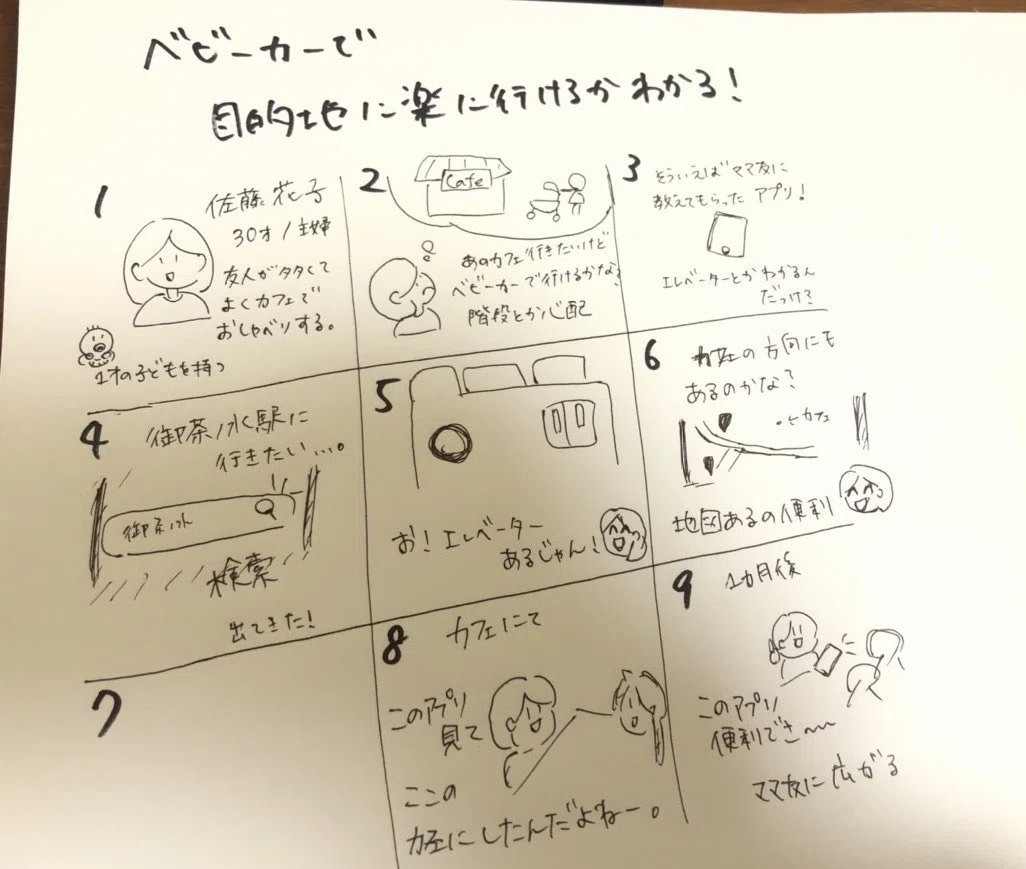 ベビーカーで
目的地に楽に行けるかわかる!
1
佐藤花子
30才/主婦
友人が多くて
よくカフェで
おしゃべりする。
1才の子どもを持つ
2
Cafe
あのカフェ行きたいけど
ベビーカーで行けるかな?
階段とか心配
3
そういえばママ友に
教えてもらったアプリ!
エレベーターとかわかるん
だっけ?
4
御茶ノ水駅に
行きたい…。
御茶ノ水
検索
出てきた!
5
お!エレベーター
あるじゃん!
6
カフェの方向にも
あるのかな?
←カフェ
地図あるの便利
7
8
カフェにて
このアプリ
見て
ここの
カフェにしたんだよねー。
9
1カ月後
このアプリ
便利でさ〜〜
ママ友に広がる